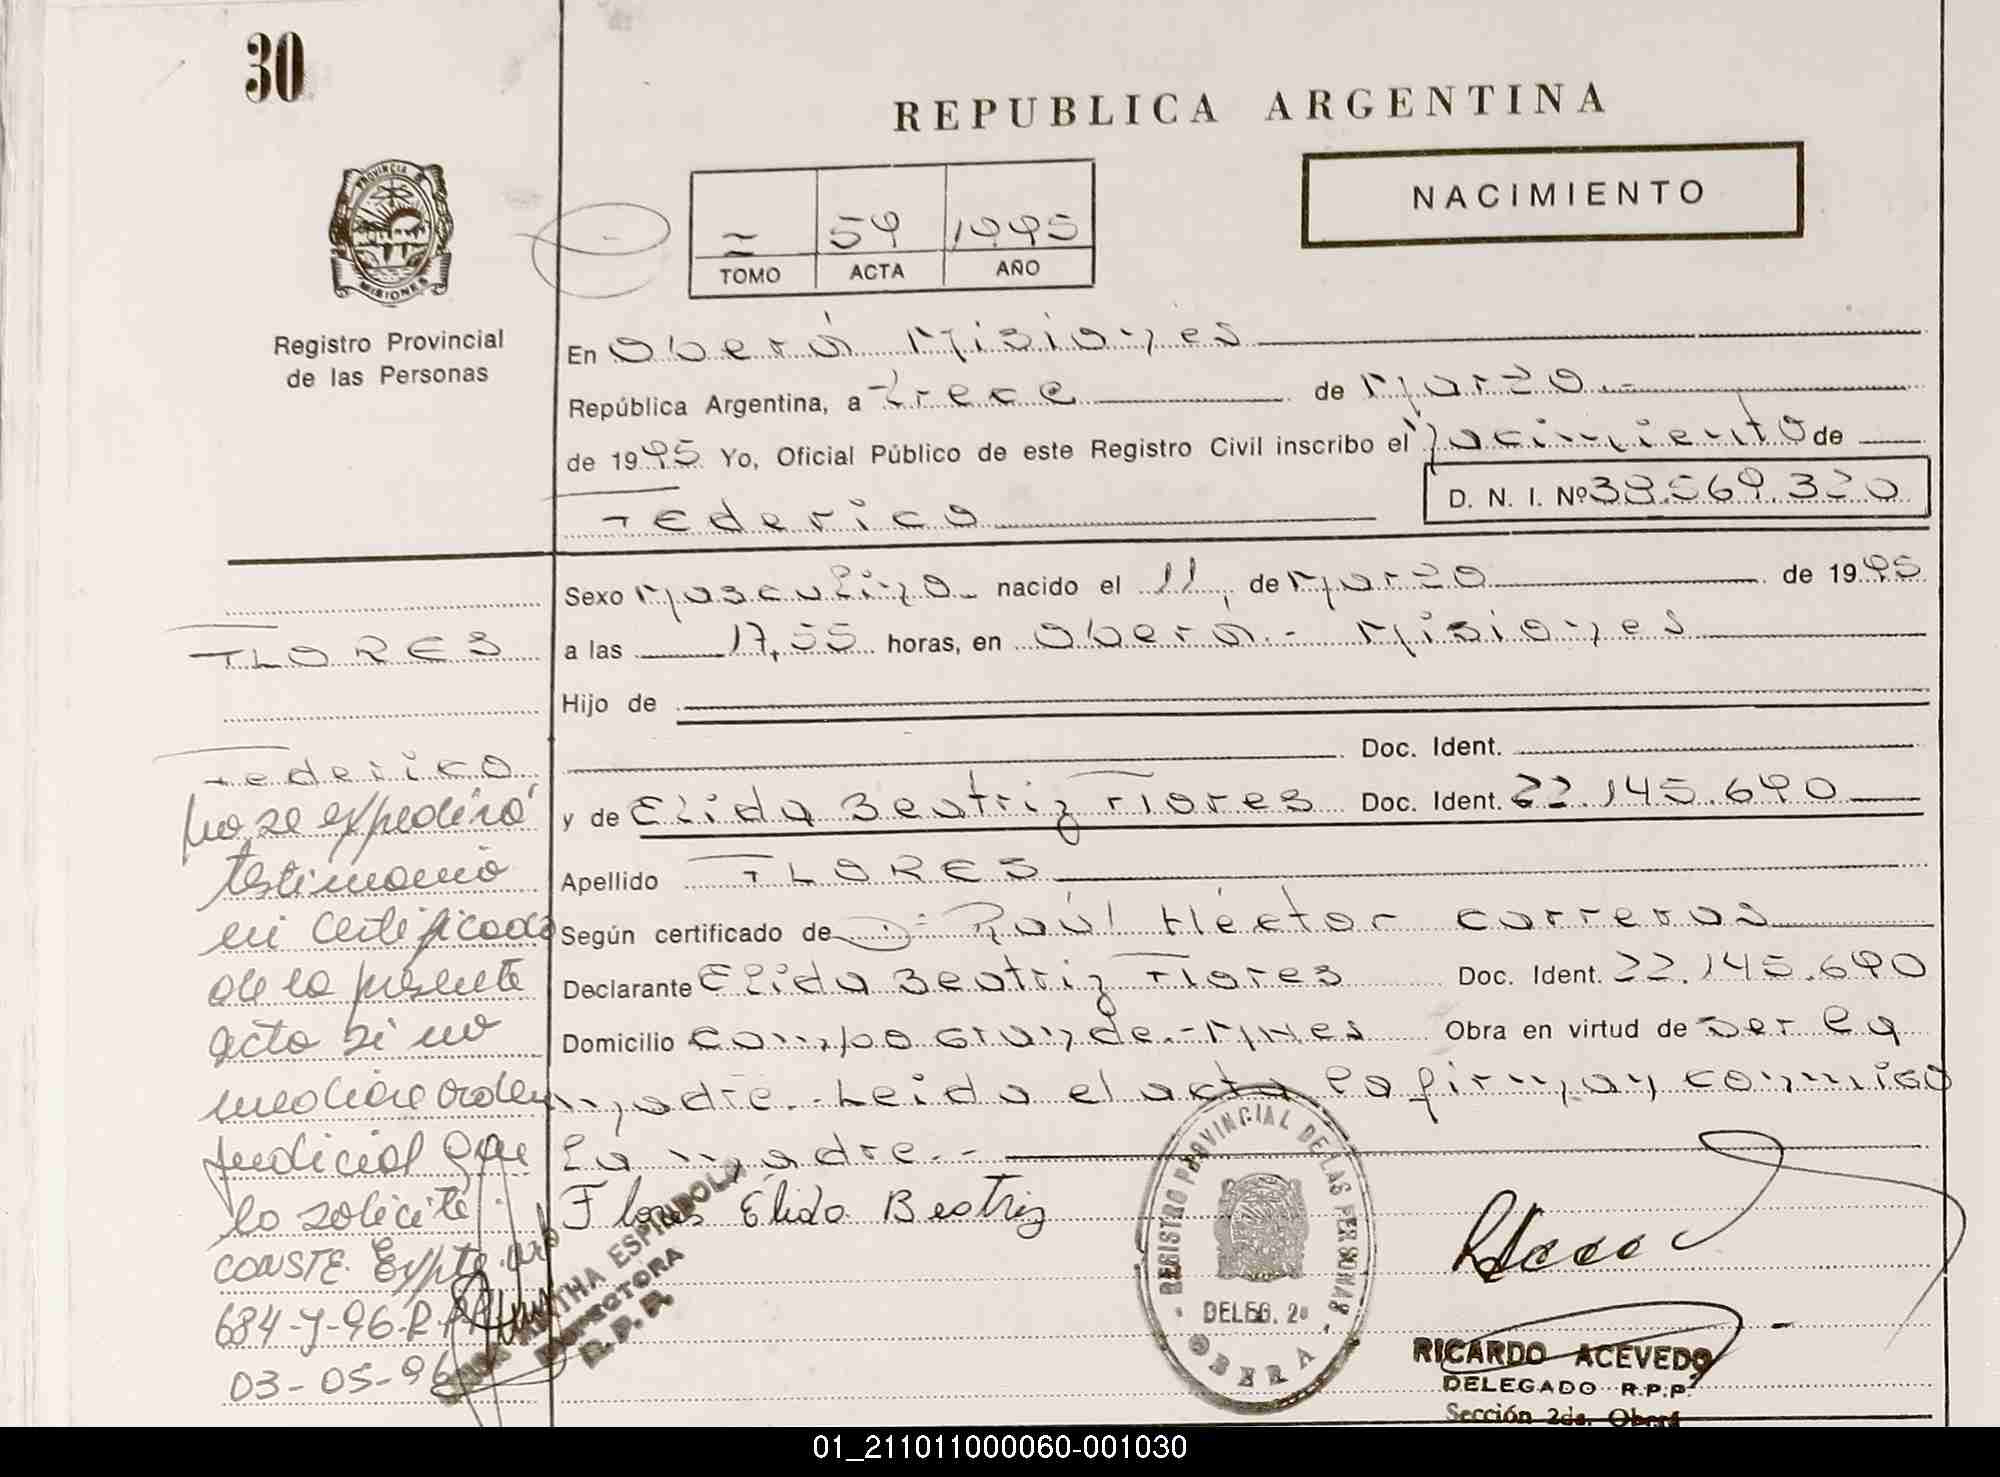 30
REPUBLICA ARGENTINA
NACIMIENTO
PROVINCIA DE
MISIONES
Registro Provincial
de las Personas
= 59 1995
TOMO ACTA AÑO
En Oberá Misiones
República Argentina, a trece de Marzo.-
de 1995 Yo, Oficial Público de este Registro Civil inscribo el Nacimiento de
Federico
D. N. I. Nº 38.569.320
Sexo Masculino nacido el 11, de Marzo de 1995
a las 17,55 horas, en Oberá.- Misiones
Hijo de
Doc. Ident.
y de Elida Beatriz Flores Doc. Ident. 22.145.690
Apellido FLORES
Según certificado de D: Raúl Héctor Carreras
Declarante Elida Beatriz Flores Doc. Ident. 22.145.690
Domicilio Campo Grande.- Mnes Obra en virtud de ser la
madre.- Leida el acta la firman conmigo
la madre.-
Flores Elida Beatriz
FLORES
Federico
No se expedirá
testimonio
ni certificado
de la presente
acta si no
mediare orden
judicial que
lo solicite.
CONSTE. Expte. nº
684-Y-96-R.P.P.
03-05-96
MIRTHA ESPINDOLA
DIRECTORA
R.P.P.
REGISTRO PROVINCIAL DE LAS PERSONAS
DELEG. 2ª
OBERA
RICARDO ACEVEDO
DELEGADO R.P.P.
Sección 2da. Oberá
01_211011000060-001030